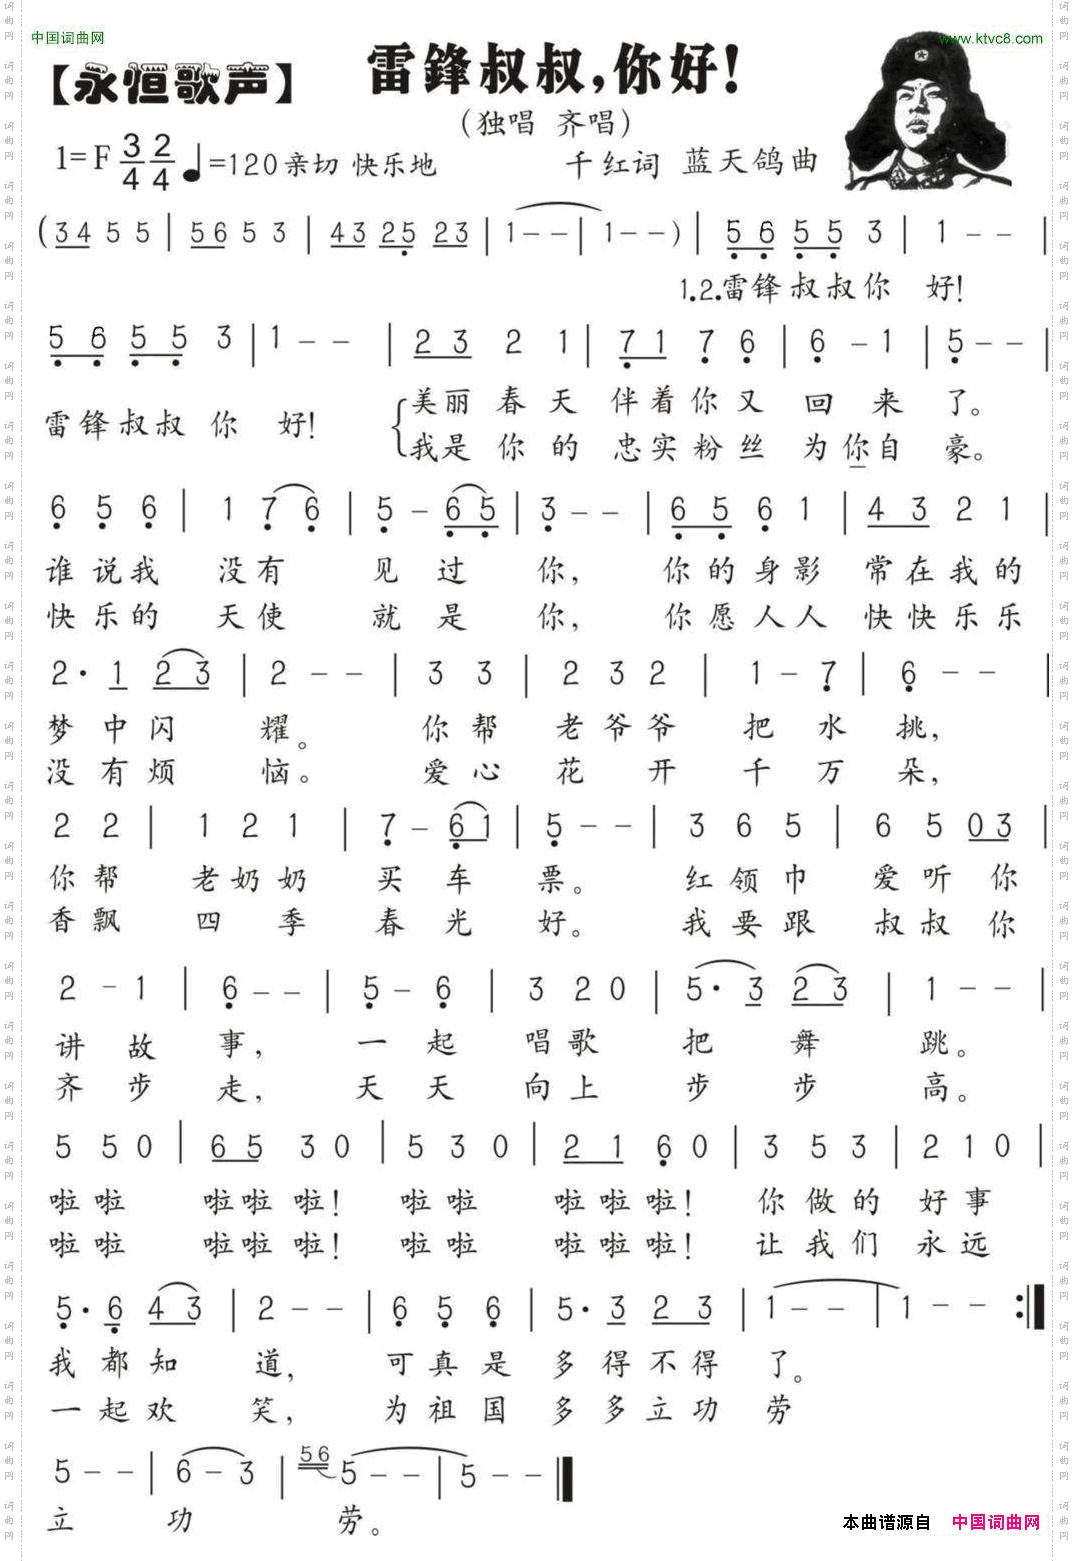 中国词曲网
www.ktvc8.com
【永恒歌声】
雷鋒叔叔,你好!
(独唱 齐唱)
1=F 3/4 2/4 ♩=120 亲切 快乐地
千红词 蓝天鸽曲
(3 4 5 5 | 5 6 5 3 | 4 3 2 5 2 3 | 1 - - | 1 - - ) | 5 6 5 5 3 | 1 - - |
1.2.雷锋叔叔你 好!
5 6 5 5 3 | 1 - - | 2 3 2 1 | 7 1 7 6 | 6 - 1 | 5 - - |
雷锋叔叔你 好! 美丽春天 伴着你又 回来 了。
我是你的 忠实粉丝 为你自 豪。
6 5 6 | 1 7 6 | 5 - 6 5 | 3 - - | 6 5 6 1 | 4 3 2 1 |
谁说我 没有 见过 你, 你的身影 常在我的
快乐的 天使 就是 你, 你愿人人 快快乐乐
2· 1 2 3 | 2 - - | 3 3 | 2 3 2 | 1 - 7 | 6 - - |
梦中闪 耀。 你帮 老爷爷 把水 挑,
没有烦 恼。 爱心 花开 千万 朵,
2 2 | 1 2 1 | 7 - 6 1 | 5 - - | 3 6 5 | 6 5 0 3 |
你帮 老奶奶 买车 票。 红领巾 爱听你
香飘 四季 春光 好。 我要跟 叔叔你
2 - 1 | 6 - - | 5 - 6 | 3 2 0 | 5· 3 2 3 | 1 - - |
讲故 事, 一起 唱歌 把舞 跳。
齐步 走, 天天 向上 步步 高。
5 5 0 | 6 5 3 0 | 5 3 0 | 2 1 6 0 | 3 5 3 | 2 1 0 |
啦啦 啦啦啦! 啦啦 啦啦啦! 你做的 好事
啦啦 啦啦啦! 啦啦 啦啦啦! 让我们 永远
5· 6 4 3 | 2 - - | 6 5 6 | 5· 3 2 3 | 1 - - | 1 - - :|
我都知 道, 可真是 多得不得 了。
一起欢 笑, 为祖国 多多立功 劳
5 - - | 6 - 3 | 5 6 5 - - | 5 - - |
立 功 劳。
本曲谱源自 中国词曲网
词曲网